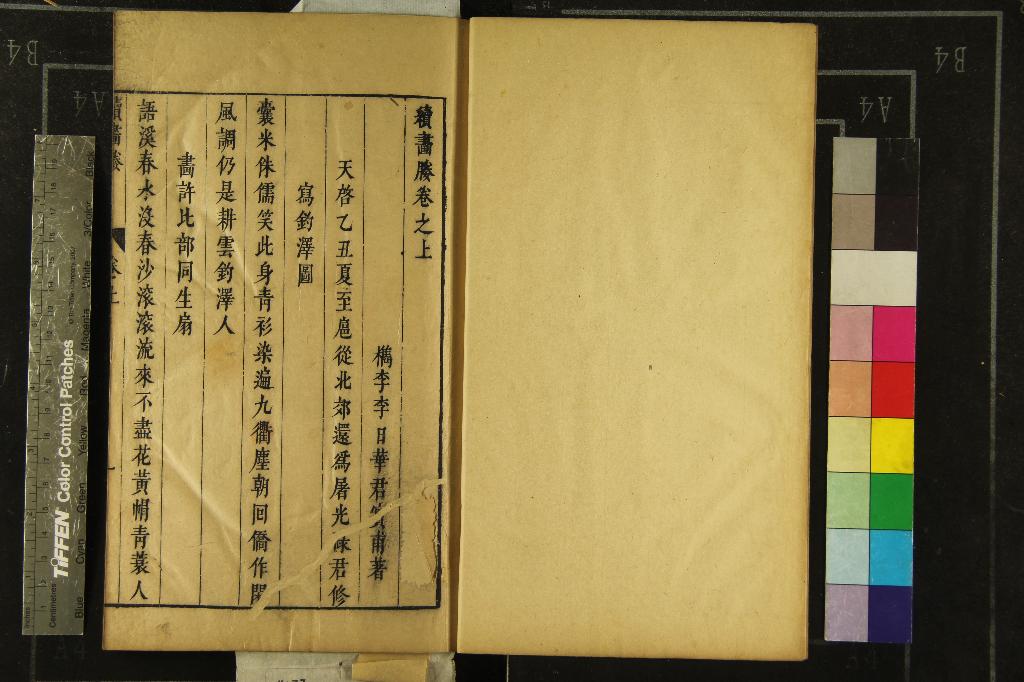 續畵賸卷之上
檇李李日華君實甫著
天啓乙丑夏至扈從北郊還爲屠光
君修
寫釣澤圖
囊米侏儒笑此身青衫染遍九衢塵朝回僑作閒
風調仍是耕雲釣澤人
畵許比部同生扇
語溪春水沒春沙滚滚流來不盡花黃帽青蓑人
續畵賸
卷上
TIFFEN Color Control Patches
Blue
Cyan
Green
Yellow
Red
Magenta
White
3/Color
Black
Inches
Centimetres
B4
A4
B4
A4